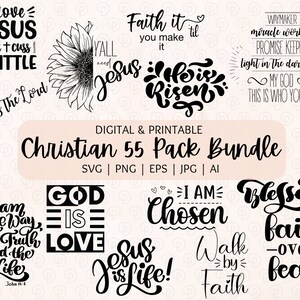 love
JESUS
+ cuss
LITTLE
Y'ALL
need
Jesus
Faith it
'til
you make
it
He is
Risen
WAYMAKER
miracle work
PROMISE KEEP
light in the dark
MY GOD
THIS IS WHO YO
the Lord
DIGITAL & PRINTABLE
Christian 55 Pack Bundle
SVG | PNG | EPS | JPG | AI
I am
the Way
Truth
and the
Life
John 14:6
GOD
IS
LOVE
Jesus
is Life!
I AM
Chosen
Walk
by
Faith
Blesse
fai
OVE
fea